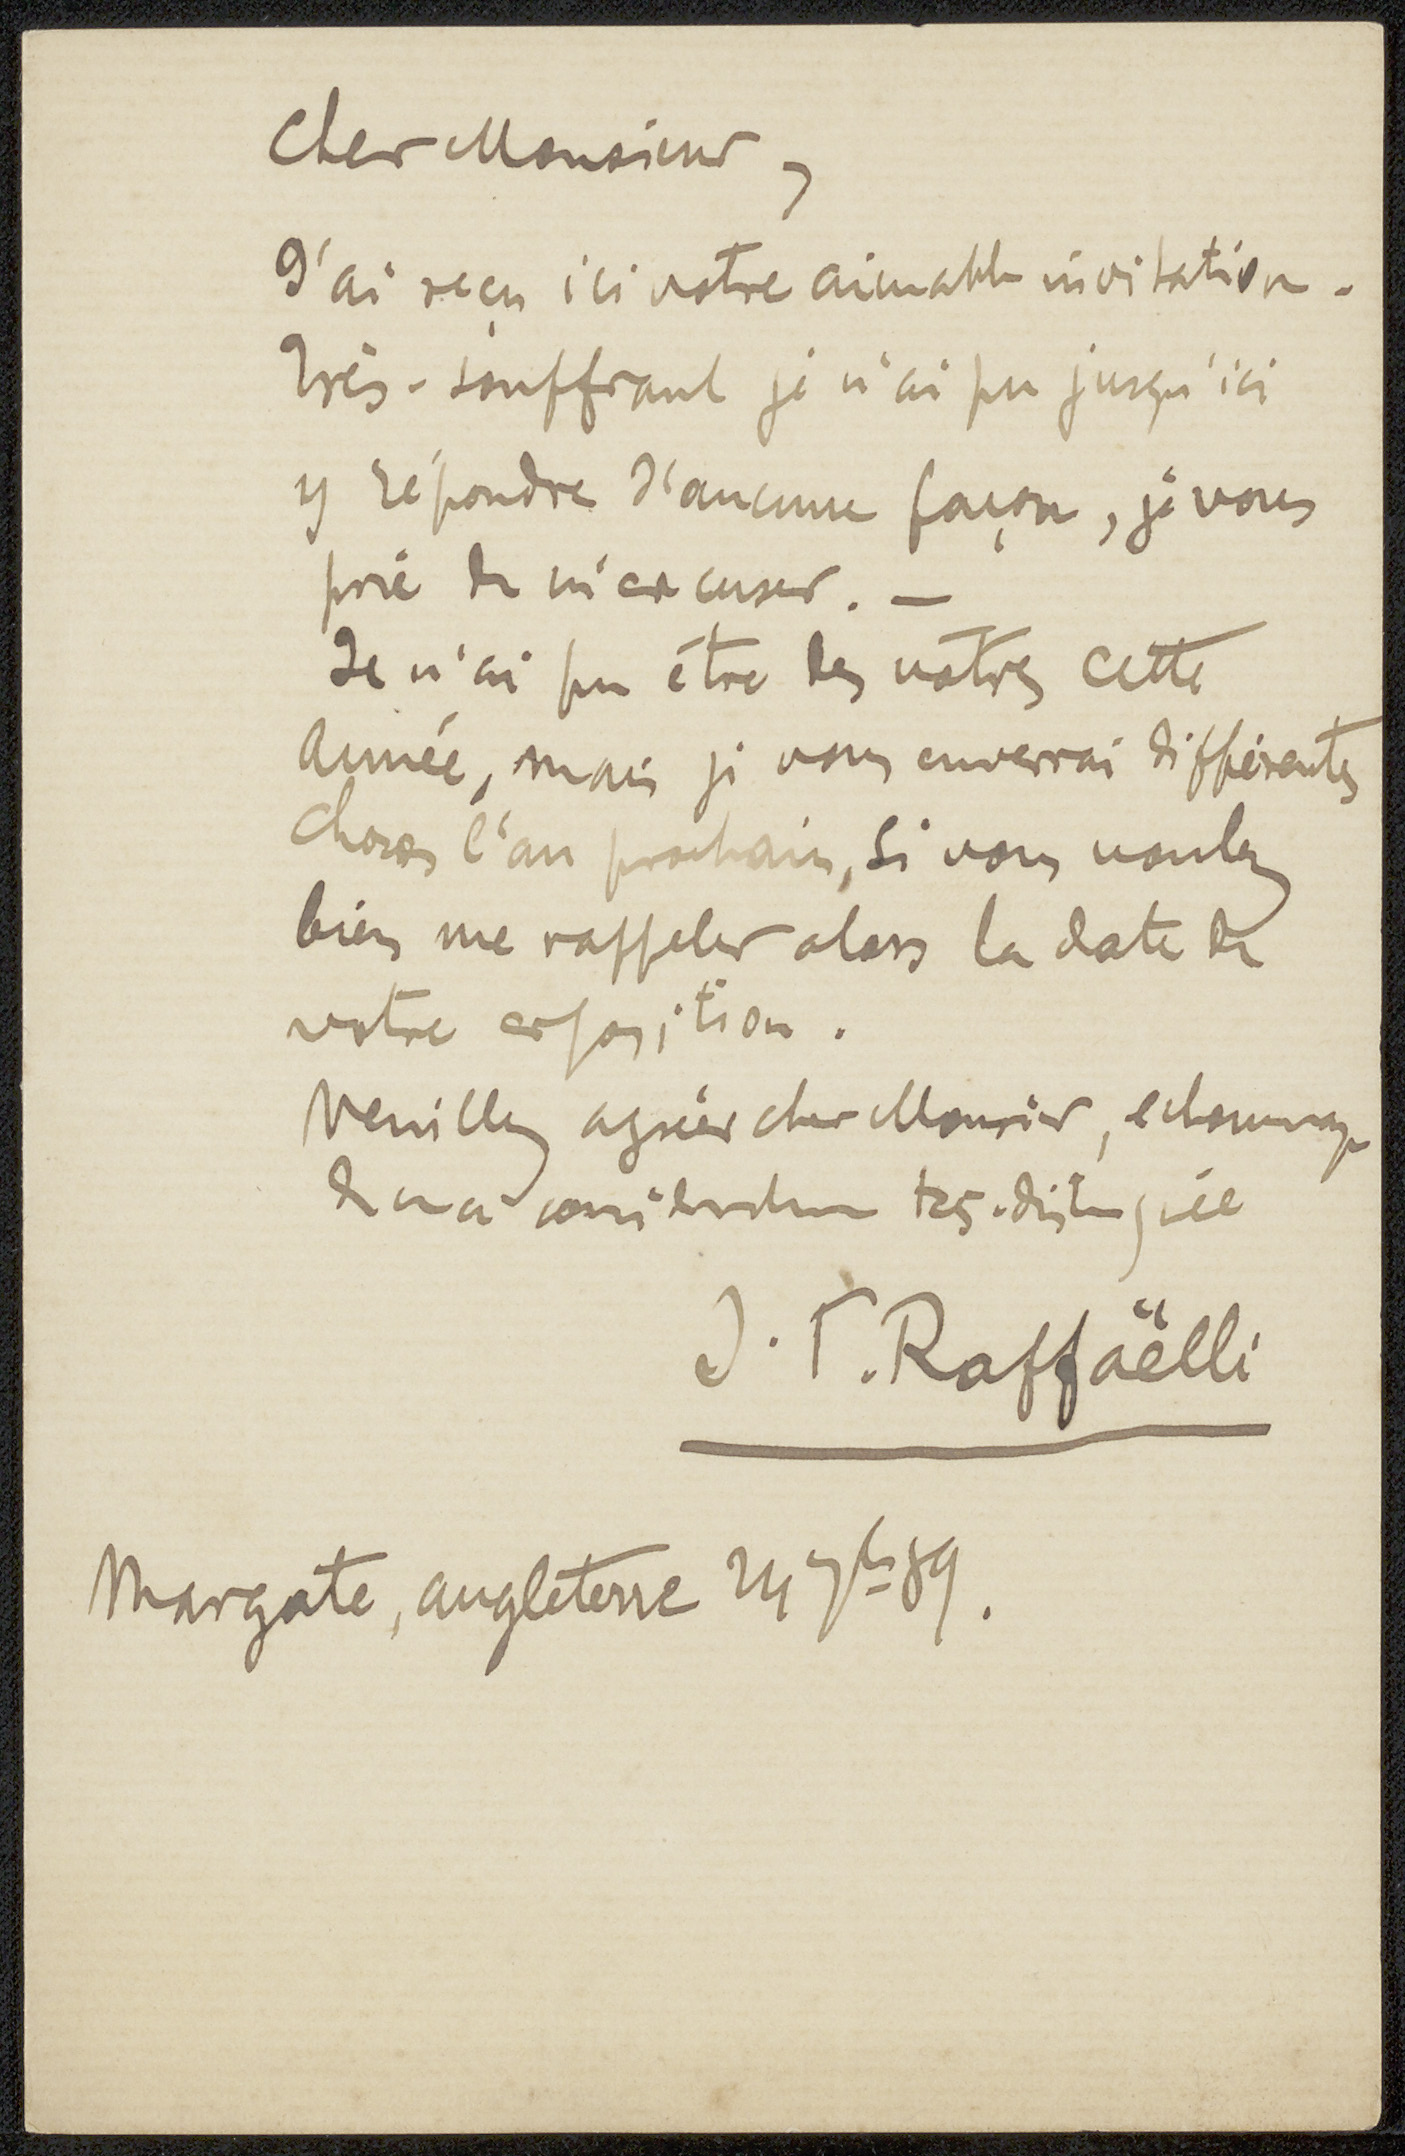 Cher Monsieur,
J'ai reçu ici votre aimable invitation.
Très-souffrant je n'ai pu jusqu'ici
y répondre d'aucune façon, je vous
prie de m'excuser. —
Je n'ai pu être des vôtres cette
année, mais je vous enverrai différentes
choses l'an prochain, si vous voulez
bien me rappeler alors la date de
votre exposition.
Veuillez agréer cher Monsieur, l'hommage
de ma considération très-distinguée
J. F. Raffaëlli
Margate, angleterre 24 7bre 89.